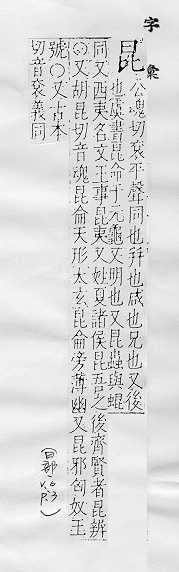 字彙
昆
公魂切袞平聲同也幷也咸也兄也又後
也虞書昆命于元龜又明也又昆蟲與蜫
同又西夷名文王事昆夷又姓夏諸侯昆吾之後齊賢者昆辨
○又胡昆切音魂昆侖天形太玄昆侖旁薄幽又昆邪匈奴王
號○又古本
切音袞義同
(日部
v.6.3
P.)